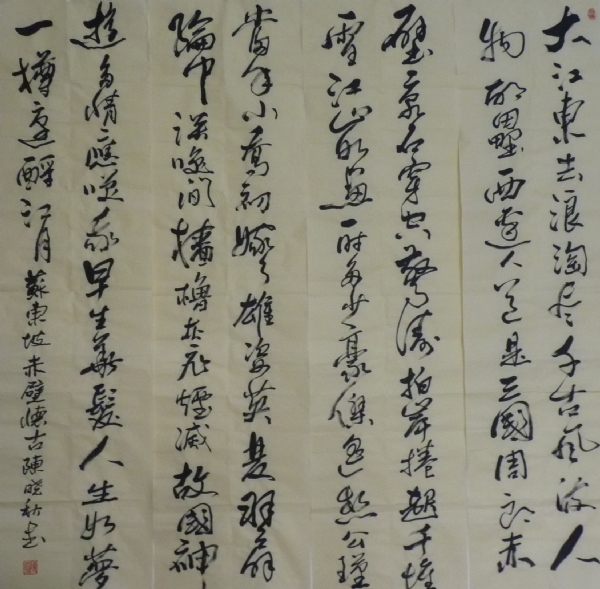 大江東去浪淘尽千古風流人
物故壘西邊人道是三國周郎赤
壁亂石穿空驚濤拍岸捲起千堆
雪江山如畫一時多少豪傑遙想公瑾
當年小喬初嫁了雄姿英發羽扇
綸巾談笑間檣櫓灰飛煙滅故國神
遊多情應笑我早生華髮人生如夢
一樽還酹江月蘇東坡赤壁懷古陳曉秋書